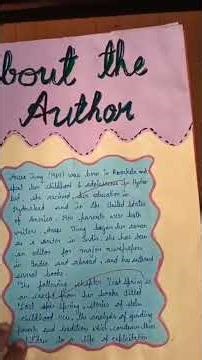 bout the
Author
Anees Jung (1964) was born in Rourkela and
spent her childhood & adolescence in Hyder
bad, she received her education in
Hyderabad and in the United States
of America. Her parents were both
writers. Anees Jung began her career
as a writer in India. She has been
an editor for major newspapers
in India and abroad, and has authored
several books.
The following chapter "Lost Spring" is
an excerpt from her book titled
Lost Spring, stories of stolen
childhood. Here, the analysis of grinding
poverty and traditions which condemn these
children to a life of exploitation